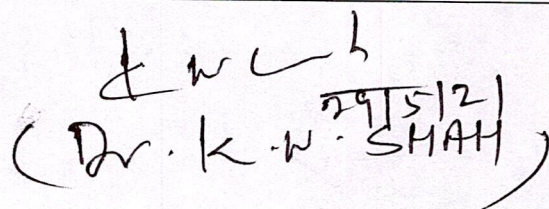 29/5/21
(Dr. K.N. SHAH)